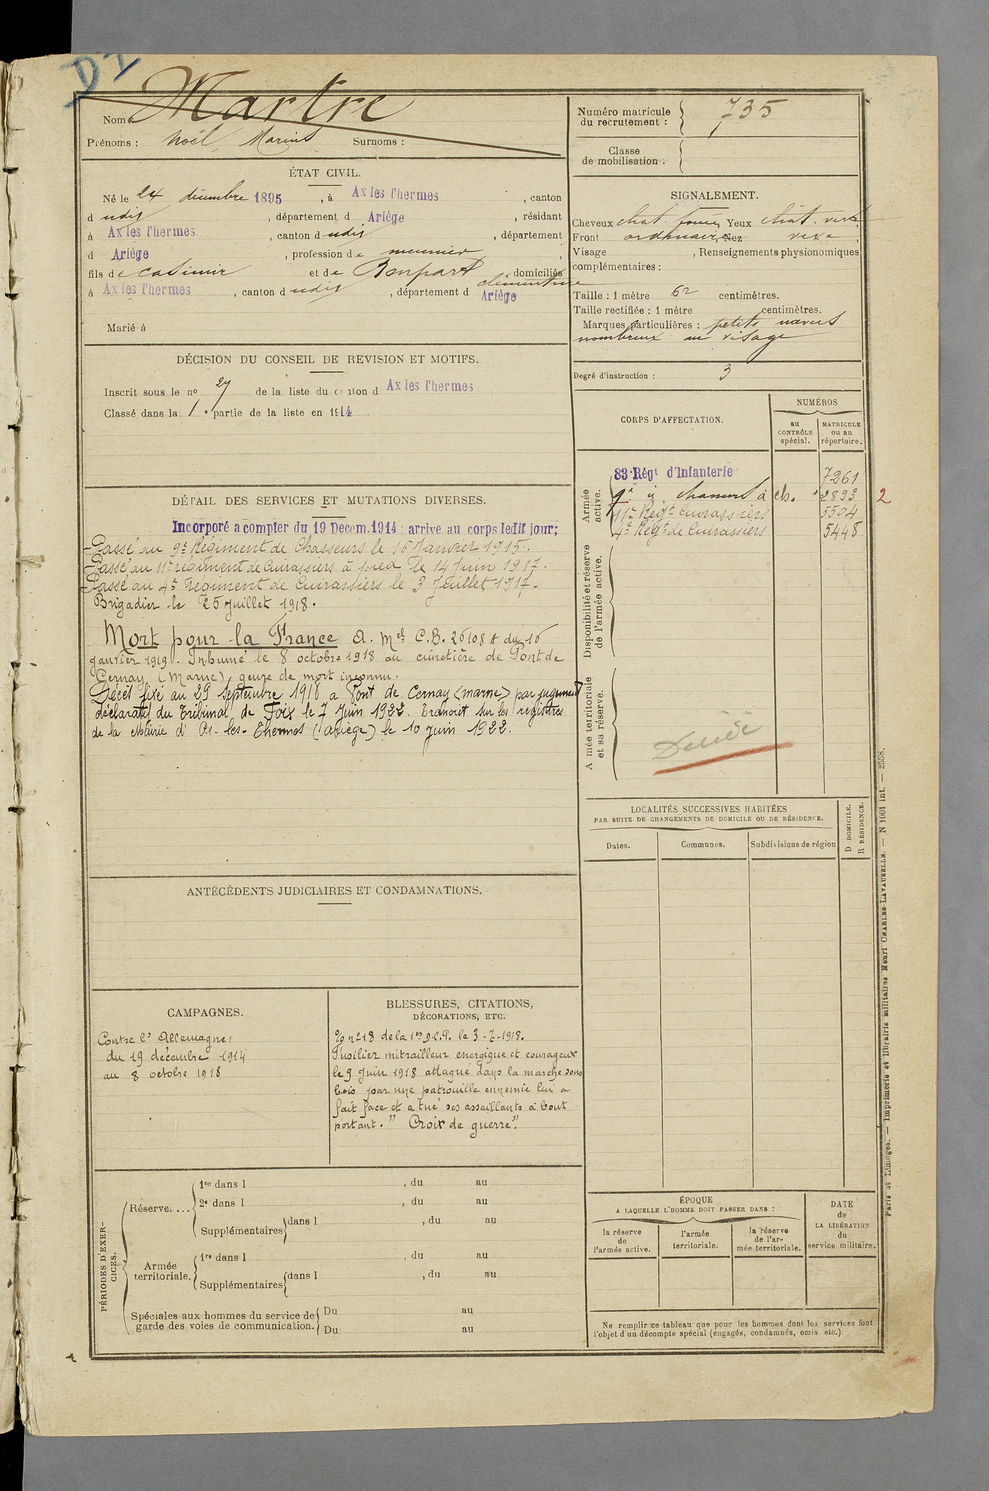 D I
Nom : Martre
Prénoms : Noël, Marius Surnoms :
Numéro matricule du recrutement : 735
Classe de mobilisation :
ÉTAT CIVIL.
Né le 24 décembre 1895, à Ax les Thermes, canton
d udit, département d Ariège, résidant
à Ax les Thermes, canton d udit, département
d Ariège, profession de meunier,
fils de Casimir et de Bonpart Clémentine domiciliés
à Ax les Thermes, canton d udit, département d Ariège
Marié à
SIGNALEMENT.
Cheveux chat. foncé Yeux chât. vert
Front ordinaire Nez vexe
Visage , Renseignements physionomiques
complémentaires :
Taille : 1 mètre 62 centimètres.
Taille rectifiée : 1 mètre centimètres.
Marques particulières : petits nævus
nombreux au visage
Degré d'instruction : 3
DÉCISION DU CONSEIL DE REVISION ET MOTIFS.
Inscrit sous le nº 27 de la liste du canton d Ax les Thermes
Classé dans la 1e partie de la liste en 1914
DÉTAIL DES SERVICES ET MUTATIONS DIVERSES.
Incorporé a compter du 19 Décem. 1914 : arrivé au corps ledit jour;
Passé au 9e Régiment de Chasseurs le 16 Janvier 1915.
Passé au 11e régiment de Cuirassiers à pied le 14 Juin 1917.
Passé au 4e Régiment de Cuirassiers le 3 Juillet 1917.
Brigadier le 25 Juillet 1918.
Mort pour la France A. Mel C.B. 26108 A du 16
janvier 1919. Inhumé le 8 octobre 1918 au cimetière de Pont de
Cernay (Marne), genre de mort inconnu.
Décès fixé au 29 septembre 1918 à Pont de Cernay (marne) par jugement
déclaratif du Tribunal de Foix le 7 Juin 1922. Transcrit sur les registres
de la Mairie d'Ax-les-Thermes (Ariège) le 10 juin 1922.
CORPS D'AFFECTATION.
NUMÉROS
au CONTRÔLE spécial.
MATRICULE ou au répertoire.
Armée active.
83e Régt d'Infanterie 7261
9e à ch. 2893 2
11e Régt Cuirassiers 5524
4e Régt de Cuirassiers 5448
Disponibilité et réserve de l'armée active.
Armée territoriale et sa réserve.
Décédé
LOCALITÉS SUCCESSIVES HABITÉES
PAR SUITE DE CHANGEMENTS DE DOMICILE OU DE RÉSIDENCE.
Dates. Communes. Subdivisions de région
D DOMICILE.
R RÉSIDENCE.
ANTÉCÉDENTS JUDICIAIRES ET CONDAMNATIONS.
CAMPAGNES.
Contre l'Allemagne:
du 19 décembre 1914
au 8 octobre 1918
BLESSURES, CITATIONS,
DÉCORATIONS, ETC.
O/ nº 18 de la 1re D.C.P. le 3-7-1918.
Fusilier mitrailleur énergique et courageux
le 9 Juin 1918 attaqué dans la marche sous
bois par une patrouille ennemie lui a
fait face et a tué ses assaillants à bout
portant." Croix de guerre".
PÉRIODES D'EXERCICES.
Réserve....
1re dans l , du au
2e dans l , du au
Supplémentaires dans l , du au
Armée territoriale.
1re dans l , du au
Supplémentaires dans l , du au
Spéciales aux hommes du service de garde des voies de communication.
Du au
Du au
ÉPOQUE
A LAQUELLE L'HOMME DOIT PASSER DANS :
la réserve de l'armée active.
l'armée territoriale.
la réserve de l'armée territoriale.
DATE de LA LIBÉRATION du service militaire.
Ne remplir ce tableau que pour les hommes dont les services font
l'objet d'un décompte spécial (engagés, condamnés, omis etc.).
Paris et Limoges. — Imprimerie et librairie militaires Henri CHARLES-LAVAUZELLE. — N 1001 int. — 2558.